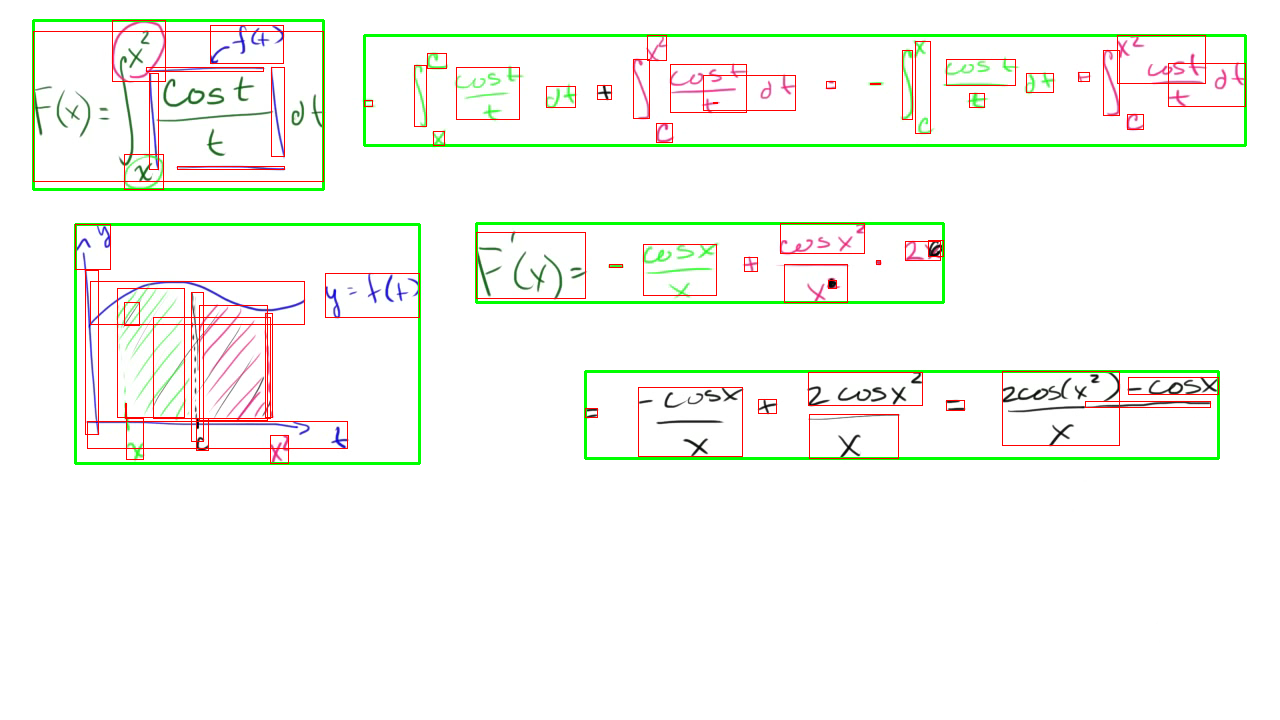 F(x) = ∫_x^{x²} cos t / t dt
f(t)
= ∫_x^c cos t / t dt + ∫_c^{x²} cos t / t dt = - ∫_c^x cos t / t dt + ∫_c^{x²} cos t / t dt
y
y = f(t)
x c x² t
F'(x) = - cos x / x + cos x² / x · 2
= -cos x / x + 2 cos x² / x = 2cos(x²) - cos x / x